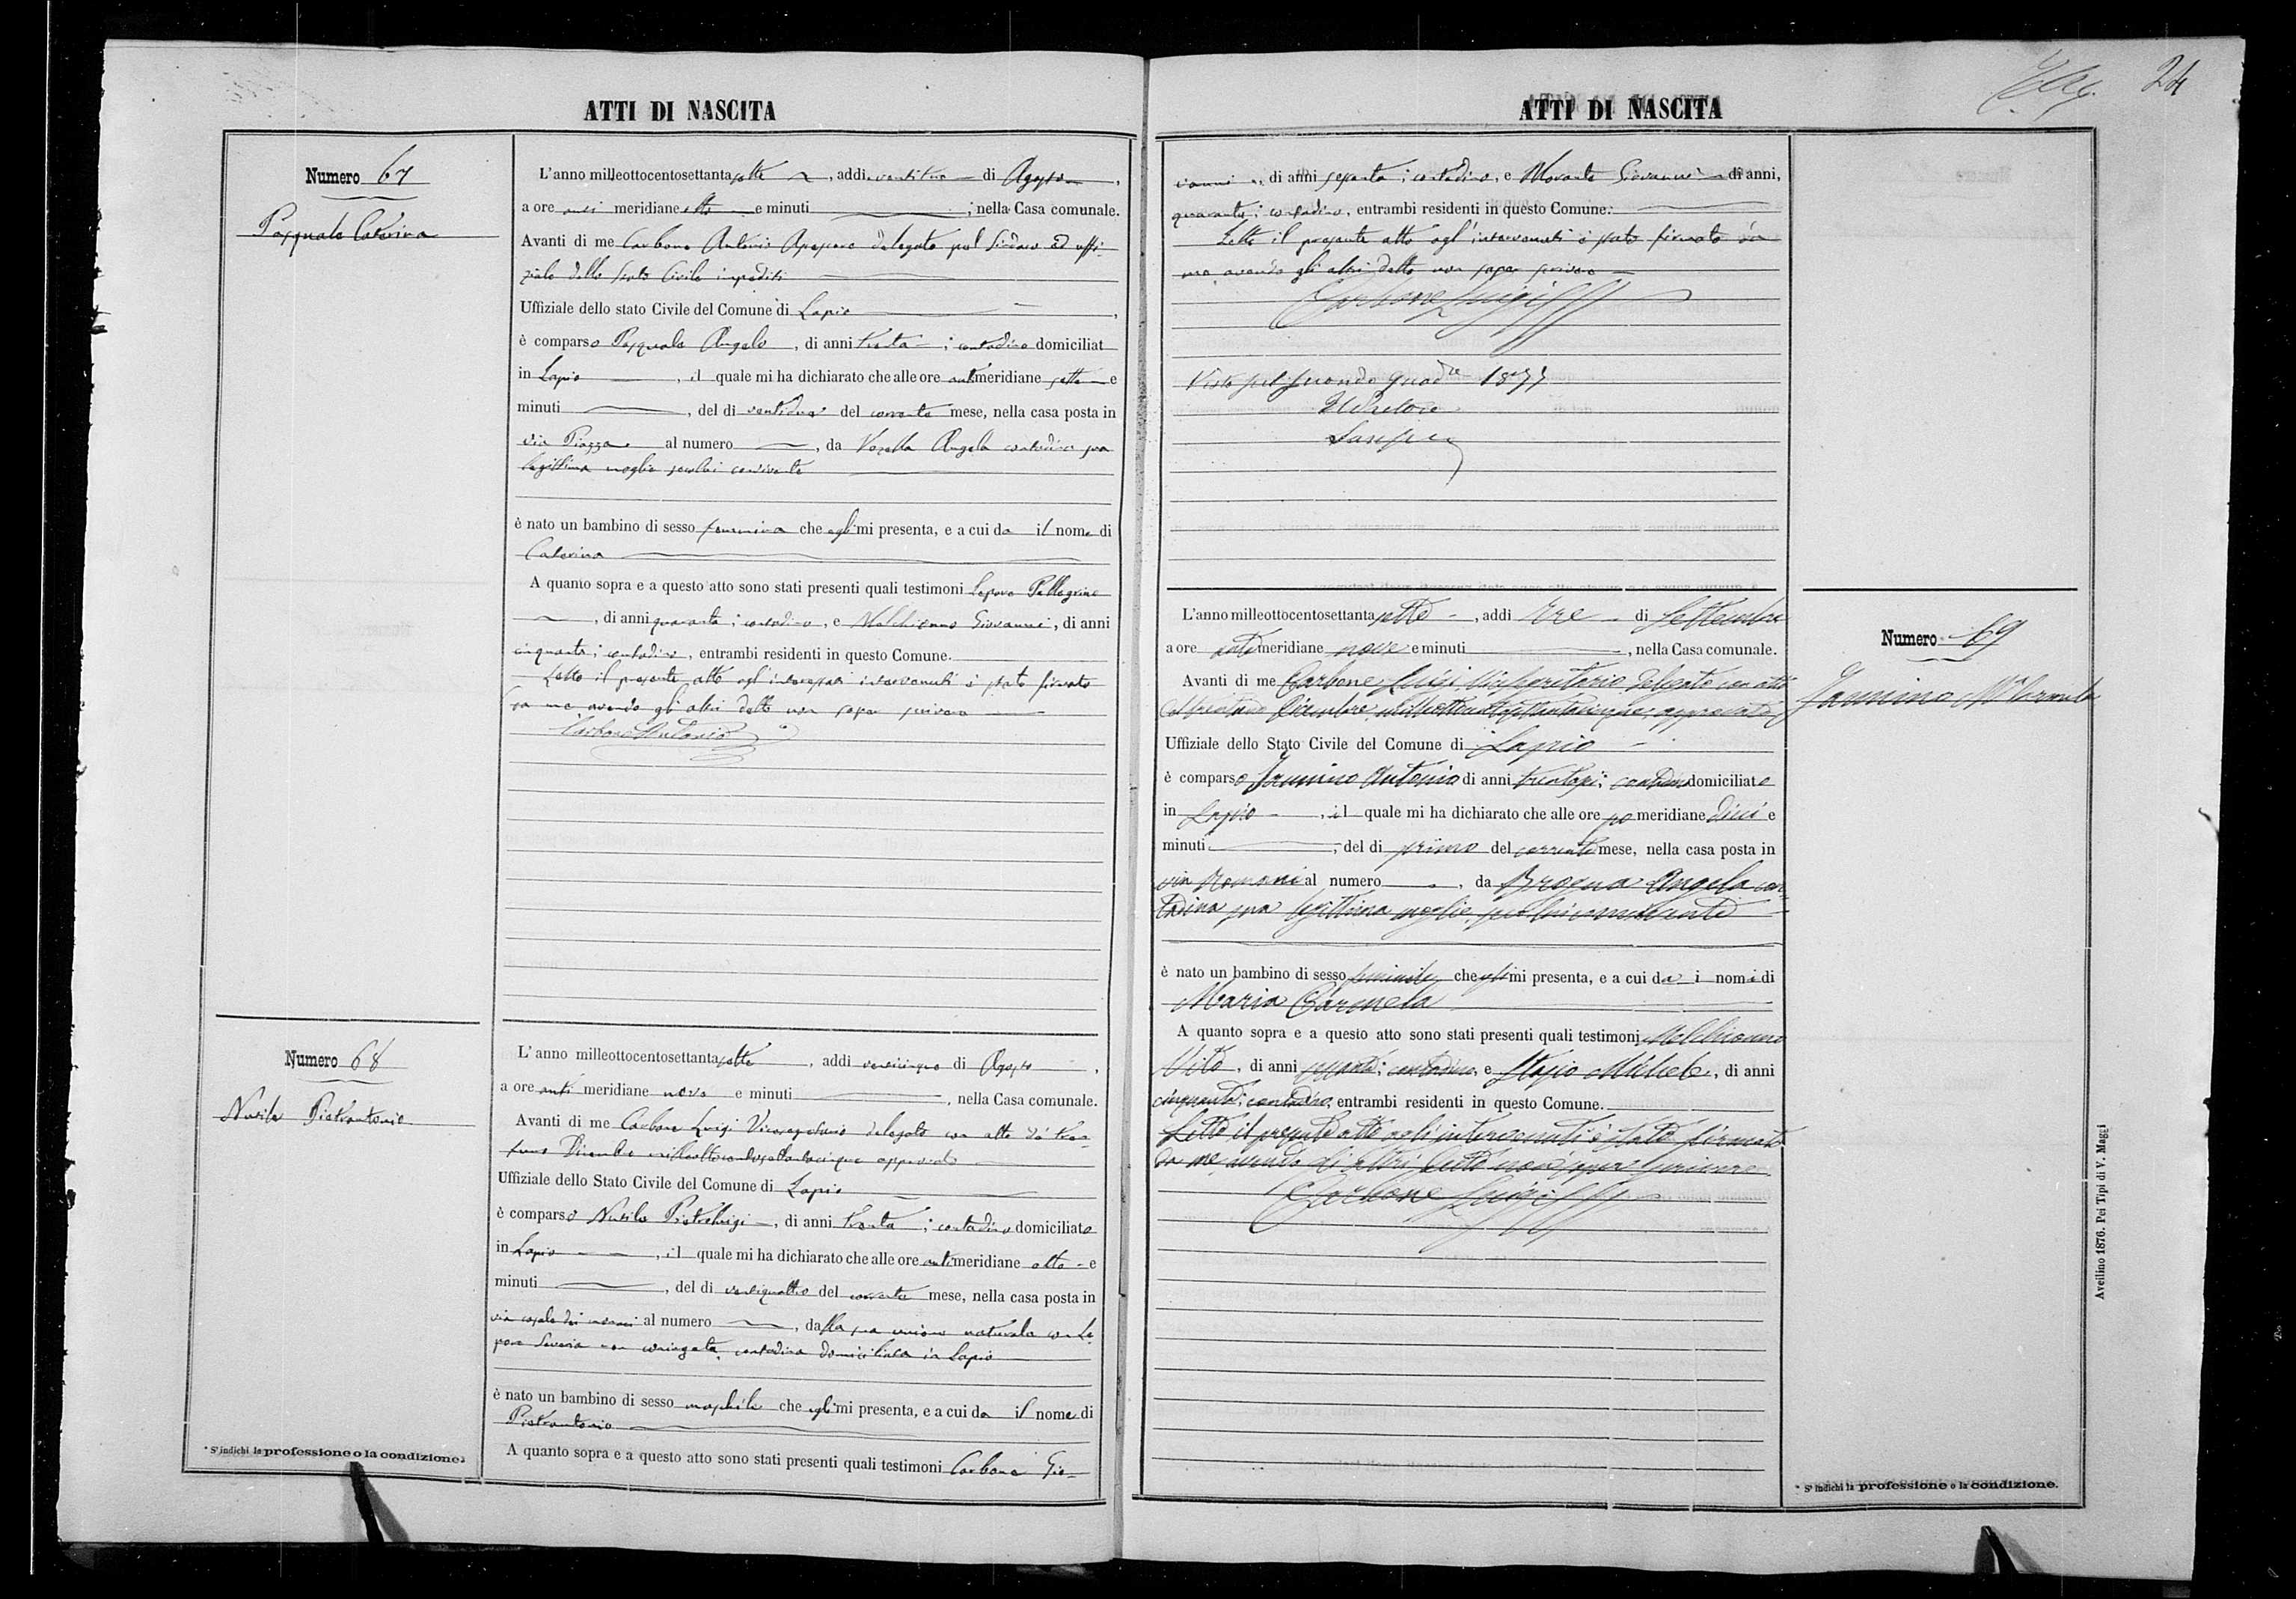 24
ATTI DI NASCITA
Numero 67
Pasquale Caterina
L'anno milleottocentosettantasette, addi ventitre di Agosto,
a ore anti meridiane otto e minuti ; nella Casa comunale.
Avanti di me Carbone Antonio Assessore delegato pel Sindaco ed uffi-
ziale dello Stato Civile impediti
Uffiziale dello stato Civile del Comune di Lapio,
è comparso Pasquale Angelo, di anni trenta; contadino domiciliat
in Lapio, il quale mi ha dichiarato che alle ore antimeridiane sette e
minuti , del di ventidue del corrente mese, nella casa posta in
via Piazza al numero , da Vozella Angela contadina sua
legittima moglie secolui convivente
è nato un bambino di sesso femminino che egli mi presenta, e a cui da il nome di
Caterina
A quanto sopra e a questo atto sono stati presenti quali testimoni Lepore Pellegrino
, di anni quaranta; contadino, e Melchionno Giovanni, di anni
cinquanta; contadino, entrambi residenti in questo Comune.
Letto il presente atto agl'interessati intervenuti è stato firmato
da me avendo gli altri detto non saper scrivere
Carbone Antonio
Numero 68
Nusile Pietrantonio
L'anno milleottocentosettantasette, addi venticinque di Agosto,
a ore anti meridiane nove e minuti , nella Casa comunale.
Avanti di me Carbone Luigi Vicesegretario delegato con atto de' tren-
tuno Dicembre milleottocentosettantacinque approvato
Uffiziale dello Stato Civile del Comune di Lapio
è comparso Nusile Pietroluigi, di anni trenta; contadino domiciliato
in Lapio, il quale mi ha dichiarato che alle ore antimeridiane otto e
minuti , del di ventiquattro del corrente mese, nella casa posta in
via casale dei al numero , dalla sua unione naturale con Le-
pore Saveria non coniugata, contadina domiciliata in Lapio
è nato un bambino di sesso maschile che egli mi presenta, e a cui da il nome di
Pietrantonio
A quanto sopra e a questo atto sono stati presenti quali testimoni Carbone Gio-
* S'indichi la professione o la condizione.
ATTI DI NASCITA
vanni, di anni sessanta; contadino, e Morante Giovanni di anni,
quaranta; contadino, entrambi residenti in questo Comune.
Letto il presente atto agl'intervenuti è stato firmato da
me avendo gli altri detto non saper scrivere
Carbone Luigi
Visto pel secondo quad.re 1877
Il Pretore
L'anno milleottocentosettantasette, addi tre di Settembre
a ore antimeridiane nove e minuti , nella Casa comunale.
Avanti di me Carbone Luigi Vicesegretario delegato con atto
del trentuno Dicembre milleottocentosettantacinque, approvato
Uffiziale dello Stato Civile del Comune di Lapio
è comparso Iannino Antonio di anni trentasei; contadino domiciliato
in Lapio, il quale mi ha dichiarato che alle ore pomeridiane dieci e
minuti , del di primo del corrente mese, nella casa posta in
via Romani al numero , da Brogna Angela con-
tadina sua legittima moglie, secolui convivente
è nato un bambino di sesso femminile che egli mi presenta, e a cui da i nomi di
Maria Carmela
A quanto sopra e a questo atto sono stati presenti quali testimoni Melchionno
Vito, di anni sessanta; contadino, e Stasio Michele, di anni
cinquanta; contadino, entrambi residenti in questo Comune.
Letto il presente atto agli intervenuti è stato firmato
da me, avendo gli altri detto non saper scrivere
Carbone Luigi
Numero 69
Iannino Ma Carmela
* S'indichi la professione o la condizione.
Avellino 1876. Pei Tipi di V. Maggi